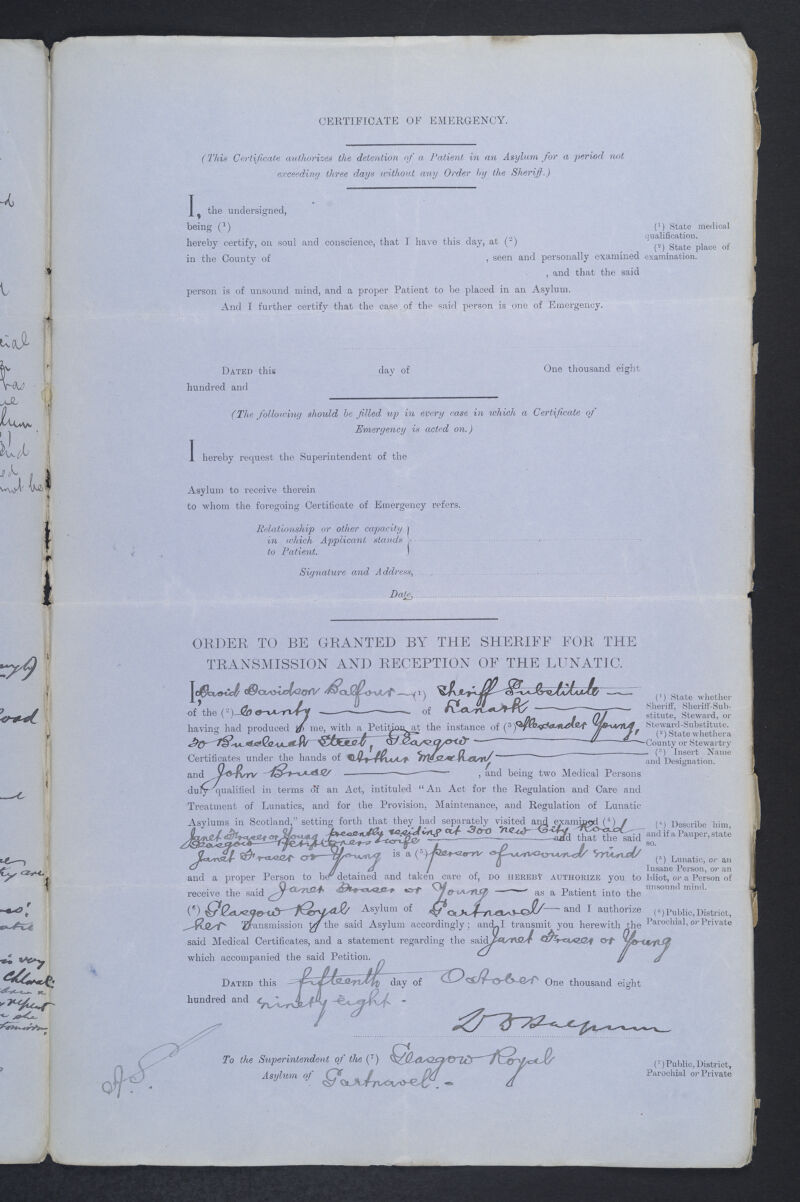 CERTIFICATE OF EMERGENCY.
(This Certificate authorizes the detention of a Patient in an Asylum for a period not
exceeding three days without any Order by the Sheriff.)
I, the undersigned,
being (1)
hereby certify, on soul and conscience, that I have this day, at (2)
in the County of , seen and personally examined
, and that the said
person is of unsound mind, and a proper Patient to be placed in an Asylum.
And I further certify that the case of the said person is one of Emergency.
(1) State medical
qualification.
(2) State place of
examination.
DATED this day of One thousand eight
hundred and
(The following should be filled up in every case in which a Certificate of
Emergency is acted on.)
I hereby request the Superintendent of the
Asylum to receive therein
to whom the foregoing Certificate of Emergency refers.
Relationship or other capacity
in which Applicant stands
to Patient.
Signature and Address,
Date,
ORDER TO BE GRANTED BY THE SHERIFF FOR THE
TRANSMISSION AND RECEPTION OF THE LUNATIC.
I, David Davidson Balfour (1) Sheriff Substitute
of the (2) County of Lanark
having had produced to me, with a Petition at the instance of (3) Alexander Young,
30 Buccleuch Street, Glasgow
Certificates under the hands of Arthur Mechan,
and John Bruce , and being two Medical Persons
duly qualified in terms of an Act, intituled "An Act for the Regulation and Care and
Treatment of Lunatics, and for the Provision, Maintenance, and Regulation of Lunatic
Asylums in Scotland," setting forth that they had separately visited and examined (4)
Janet Fraser or Young presently residing at 300 New City Road
Glasgow Petitioner's wife and that the said
Janet Fraser or Young is a (5) person of unsound mind
and a proper Person to be detained and taken care of, DO HEREBY AUTHORIZE you to
receive the said Janet Fraser or Young as a Patient into the
(6) Glasgow Royal Asylum of Gartnavel and I authorize
her Transmission to the said Asylum accordingly; and I transmit you herewith the
said Medical Certificates, and a statement regarding the said Janet Fraser or Young
which accompanied the said Petition.
(1) State whether
Sheriff, Sheriff-Sub-
stitute, Steward, or
Steward-Substitute.
(2) State whether a
County or Stewartry
(3) Insert Name
and Designation.
(4) Describe him,
and if a Pauper, state
so.
(5) Lunatic, or an
Insane Person, or an
Idiot, or a Person of
unsound mind.
(6) Public, District,
Parochial, or Private
DATED this fifteenth day of October One thousand eight
hundred and ninety eight.
D D Balfour
To the Superintendent of the (7) Glasgow Royal
Asylum of Gartnavel.
(7) Public, District,
Parochial or Private